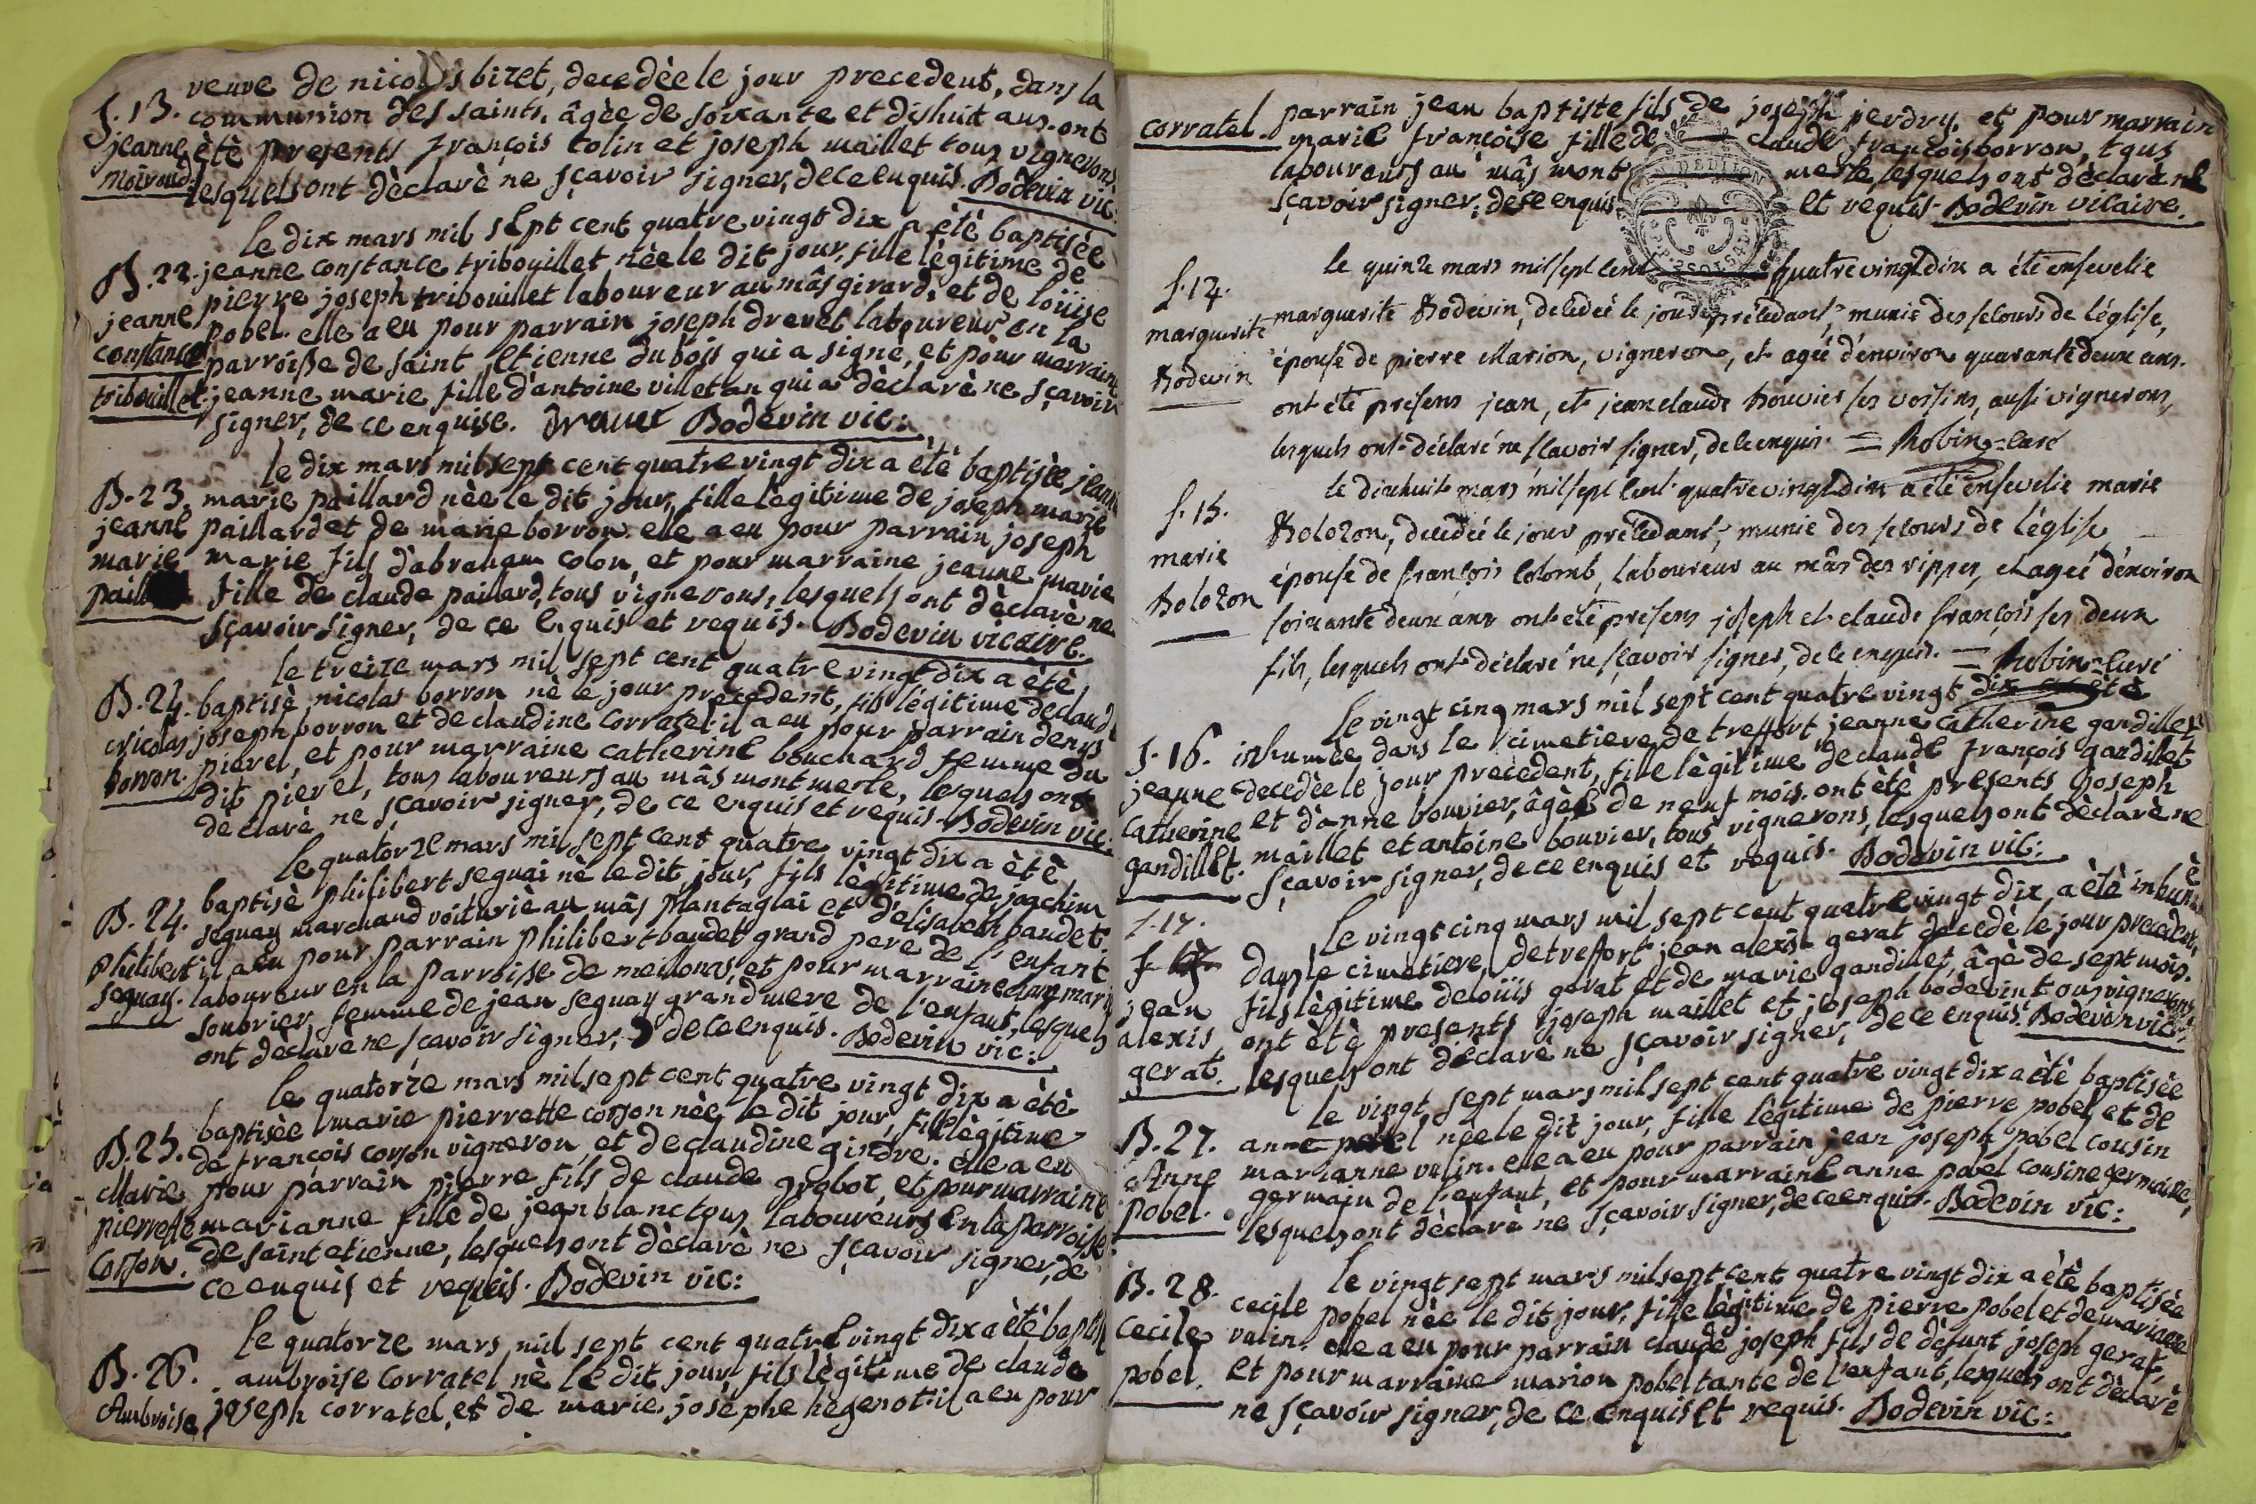 veuve de nicolas bizet, decedèe le jour precedent, dans la
S. 13. communion des saints, âgèe de soixante et dishuit ans. ont
jeanne ètè presents françois colin et joseph maillet tous vignerons
moiroud lesquels ont dèclarè ne sçavoir signer, de ce enquis. Bodevin vic:
le dix mars mil sept cent quatre vingt dix a ètè baptisèe
B. 22. jeanne constance tribouillet nèe le dit jour, fille lègitime de
jeanne pierre joseph tribouillet laboureur au mâs girard, et de loüise
constance pobel. elle a eu pour parrain joseph drevet laboureur en la
parroisse de saint etienne du bois qui a signè, et pour marraine
tribouillet. jeanne marie fille d'antoine villetan qui a dèclarè ne sçavoir
signer, de ce enquise. Drevet Bodevin vic:
le dix mars mil sept cent quatre vingt dix a ètè baptisèe jeanne
B. 23. marie paillard nèe le dit jour, fille lègitime de joseph marie
jeanne paillard et de marie borron. elle a eu pour parrain joseph
marie marie fils d'abraham colon, et pour marraine jeanne marie
fille de claude paillard, tous vignerons, lesquels ont dèclarè ne
sçavoir signer, de ce enquis et requis. Bodevin vicaire.
le treize mars mil sept cent quatre vingt dix a ètè
B. 24. baptisè nicolas borron nè le jour precedent, fils lègitime de claude
Nicolas joseph borron et de claudine corratel. il a eu pour parrain denys
borron. pierel, et pour marraine catherine bouchard femme du
dit pierel, tous laboureurs au mâs mont merle, lesquels ont
dèclarè ne sçavoir signer, de ce enquis et requis. Bodevin vic:
le quatorze mars mil sept cent quatre vingt dix a ètè
B. 24. baptisè philibert seguai nè le dit jour, fils lègitime de joachim
seguay marchand voituriè au mâs plantaglai et d'elisabeth baudet.
philibert il a eu pour parrain philibert baudet grand pere de l'enfant
seguay. laboureur en la parroisse de meillonas, et pour marraine marie
soubrier femme de jean seguay grand mere de l'enfant, lesquels
ont dèclarè ne sçavoir signer, de ce enquis. Bodevin vic:
le quatorze mars mil sept cent quatre vingt dix a ètè
baptisèe marie pierrette corson nèe le dit jour, fille lègitime
B. 25. de françois corson vigneron, et de claudine gindre. elle a eu
Marie pour parrain pierre fils de claude grobox, et pour marraine
pierrette marianne fille de jean blanc tous laboureurs en la parroisse
corson. de saint etienne, lesquels ont dèclarè ne sçavoir signer, de
ce enquis et requis. Bodevin vic:
le quatorze mars mil sept cent quatre vingt dix a ètè baptisè
B. 26. ambroise corratel nè le dit jour, fils lègitime de claude
Ambroise joseph corratel, et de marie josephe hegenot. il a eu pour
parrain jean baptiste fils de joseph perdry, et pour marraine
corratel. marie françoise fille de claude françois borron, tous
laboureurs au mâs mont merle, lesquels ont dèclarè ne
sçavoir signer, de ce enquis et requis. Bodevin vicaire.
le quinze mars mil sept cent quatre vingt dix a été ensevelie
S. 14. marguerite Bodevin, décédée le jour précédant, munie des secours de l'église,
marguerite épouse de pierre Marion, vigneron, et agée d'environ quarante deux ans.
Bodevin ont été présens jean, et jean claude Bouvier ses voisins, aussi vignerons,
lesquels ont déclaré ne scavoir signer, de ce enquis. = Robin = curé
le dixhuit mars mil sept cent quatre vingt dix a été ensevelie marie
S. 15. Bolozon, décédée le jour précédant, munie des secours de l'église
marie épouse de françois Colomb, laboureur au mâs des rippes, et agée d'environ
Bolozon soixante deux ans ont été présens joseph et claude françois ses deux
fils, lesquels ont déclaré ne sçavoir signer, de ce enquis. = Robin = curé
le vingt cinq mars mil sept cent quatre vingt dix a ètè
S. 16. inhumèe dans le cimetiere de treffort jeanne catherine gandillet
jeanne decedèe le jour precedent, fille lègitime de claude françois gandillet
catherine et d'anne bouvier, âgèe de neuf mois. ont ètè presents joseph
gandillet. maillet et antoine bouvier, tous vignerons, lesquels ont dèclarè ne
sçavoir signer, de ce enquis et requis. Bodevin vic:
S. 17. le vingt cinq mars mil sept cent quatre vingt dix a ètè inhumè
dans le cimetiere de treffort jean alexis gerat decedè le jour precedent,
jean fils lègitime de loüis gerat et de marie gandillet, âgè de sept mois.
alexis ont ètè presents joseph maillet et joseph bodevin tous vignerons
gerat. lesquels ont dèclarè ne sçavoir signer, de ce enquis. Bodevin vic:
le vingt sept mars mil sept cent quatre vingt dix a ètè baptisèe
B. 27. anne pobel nèe le dit jour, fille lègitime de pierre pobel et de
Anne marianne vulin. elle a eu pour parrain jean joseph pobel cousin
pobel. germain de l'enfant, et pour marraine anne pobel cousine germaine,
lesquels ont dèclarè ne sçavoir signer, de ce enquis. Bodevin vic:
le vingt sept mars mil sept cent quatre vingt dix a ètè baptisèe
B. 28. cecile pobel nèe le dit jour, fille lègitime de pierre pobel et de marianne
cecile vulin. elle a eu pour parrain claude joseph fils de dèfunt joseph gerat,
pobel. et pour marraine marion pobel tante de l'enfant, lesquels ont dèclarè
ne sçavoir signer, de ce enquis et requis. Bodevin vic: